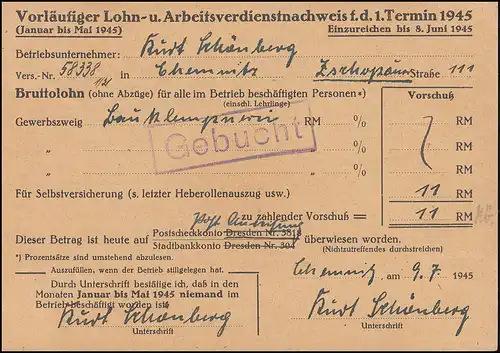 Vorläufiger Lohn- u. Arbeitsverdienstnachweis f. d. 1. Termin 1945
(Januar bis Mai 1945) Einzureichen bis 8. Juni 1945
Betriebsunternehmer: Kurt Schönberg
Vers.-Nr. 58338 in Chemnitz Zschopauer Straße 111
Bruttolohn (ohne Abzüge) für alle im Betrieb beschäftigten Personen*) Vorschuß
(einschl. Lehrlinge)
Gewerbszweig Bauklempnerei RM % RM
Gebucht
" " % RM
" " % RM
Für Selbstversicherung (s. letzter Heberollenauzug usw.) 11 RM
zu zahlender Vorschuß = 11 RM
Post Anweisung
Dieser Betrag ist heute auf Postscheckkonto Dresden Nr. 3818 überwiesen worden.
Stadtbankkonto Dresden Nr. 304 (Nichtzutreffendes durchstreichen)
*) Prozentsätze sind umstehend abzulesen.
Auszufüllen, wenn der Betrieb stillgelegen hat.
Chemnitz am 9. 7. 1945
Durch Unterschrift bestätige ich, daß in den
Monaten Januar bis Mai 1945 niemand im
Betrieb beschäftigt worden ist.
Kurt Schönberg Kurt Schönberg
Unterschrift Unterschrift